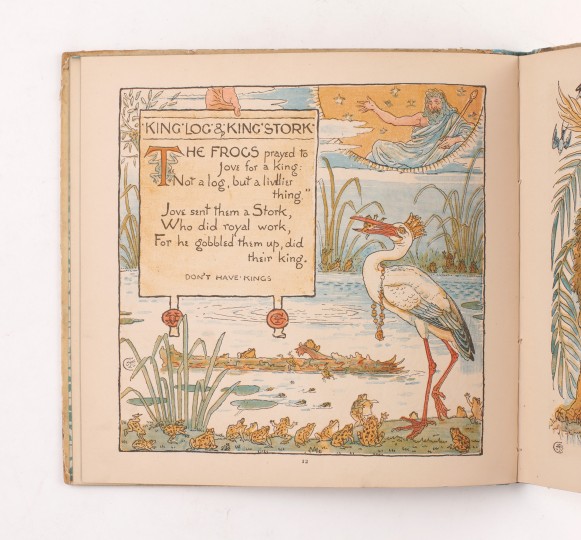 "KING LOG & KING STORK"
THE FROGS prayed to
Jove for a king:
"Not a log, but a livelier
thing."
Jove sent them a Stork,
Who did royal work,
For he gobbled them up, did
their king.
DON'T HAVE KINGS
12